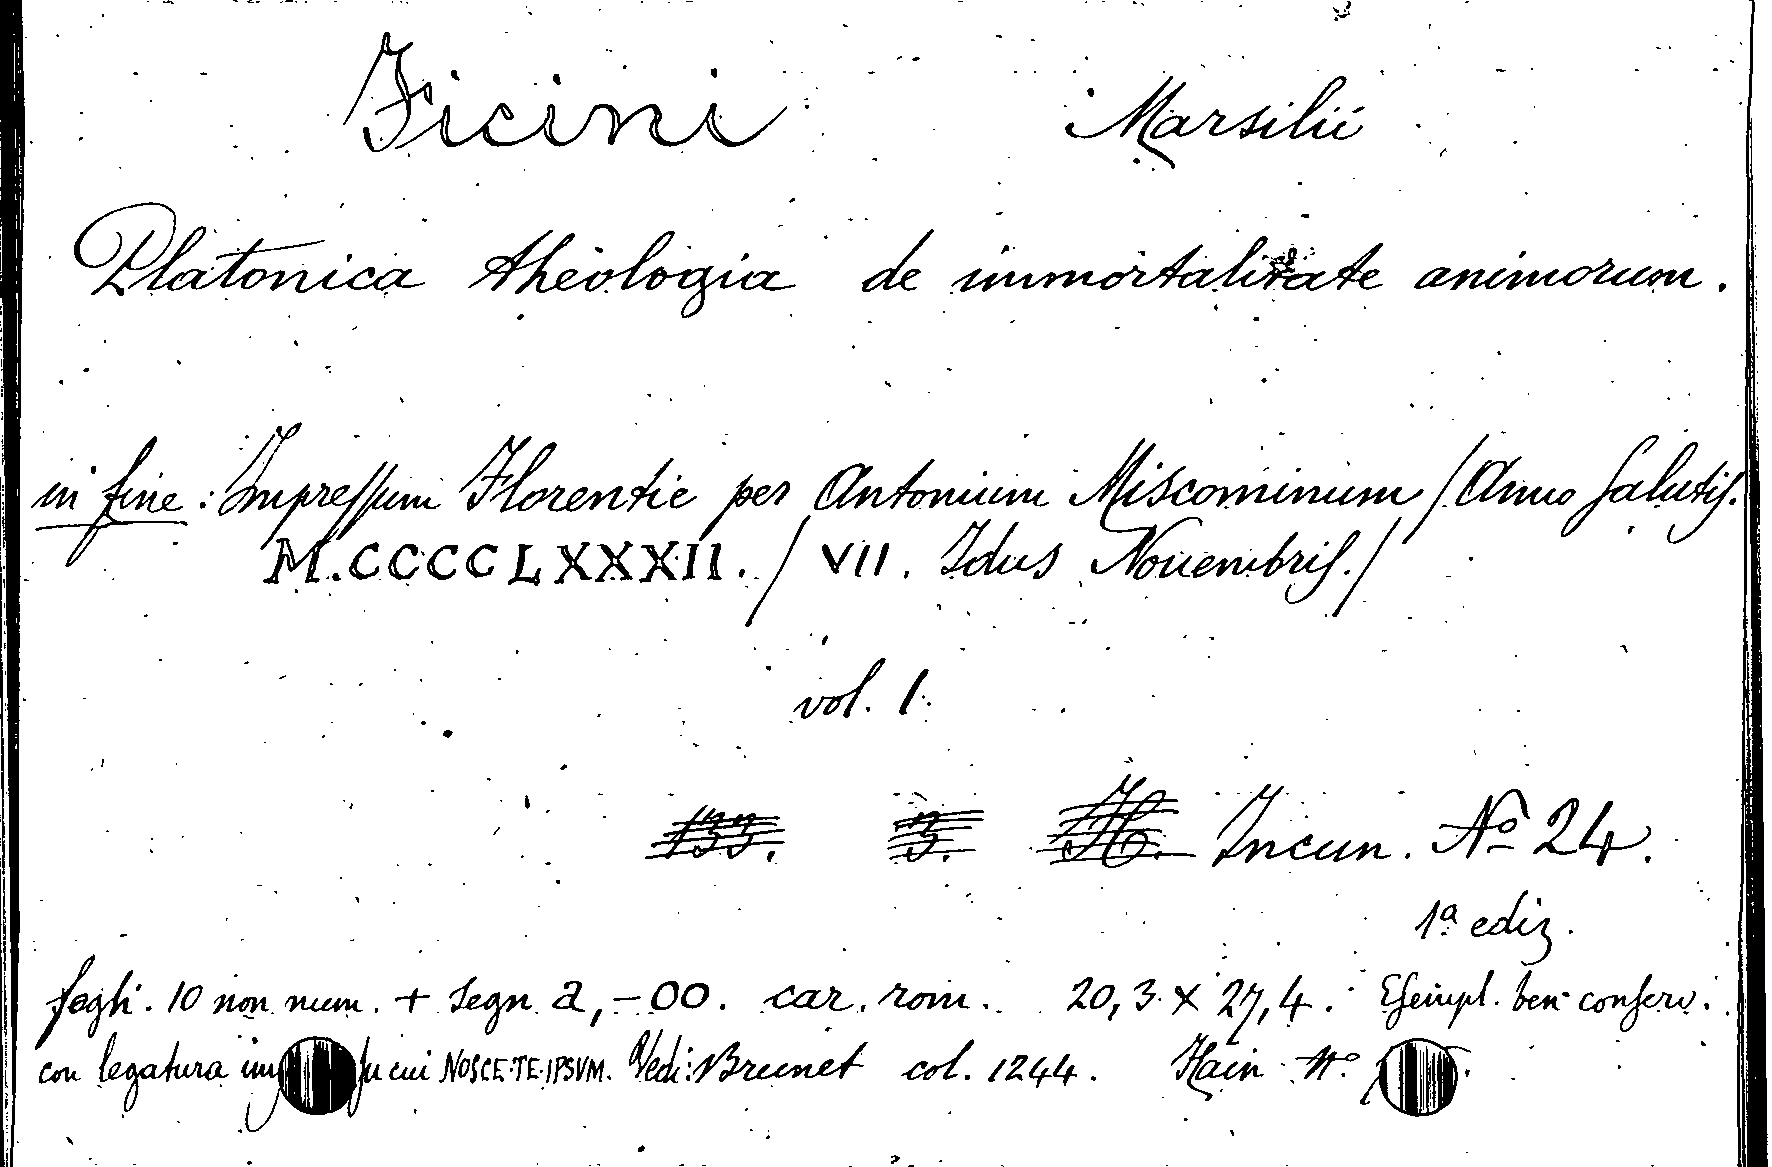 Ficini Marsilii
Platonica theologia de immortalitate animorum.
in fine: Impreſſum Florentie per Antonium Miscominum / Anno ſalutiſ.
M.CCCCLXXXII. / VII. Idus Nouembriſ. /
vol. 1.
133. 3. H. Incun. Nº 24.
1ª ediz.
fogli. 10 non num. + segn a, - OO. car. rom. 20,3 x 27,4. Eſempl. ben conſerv.
con legatura ſu cui NOSCE·TE·IPSVM. Vedi: Brunet col. 1244. Hain Nº